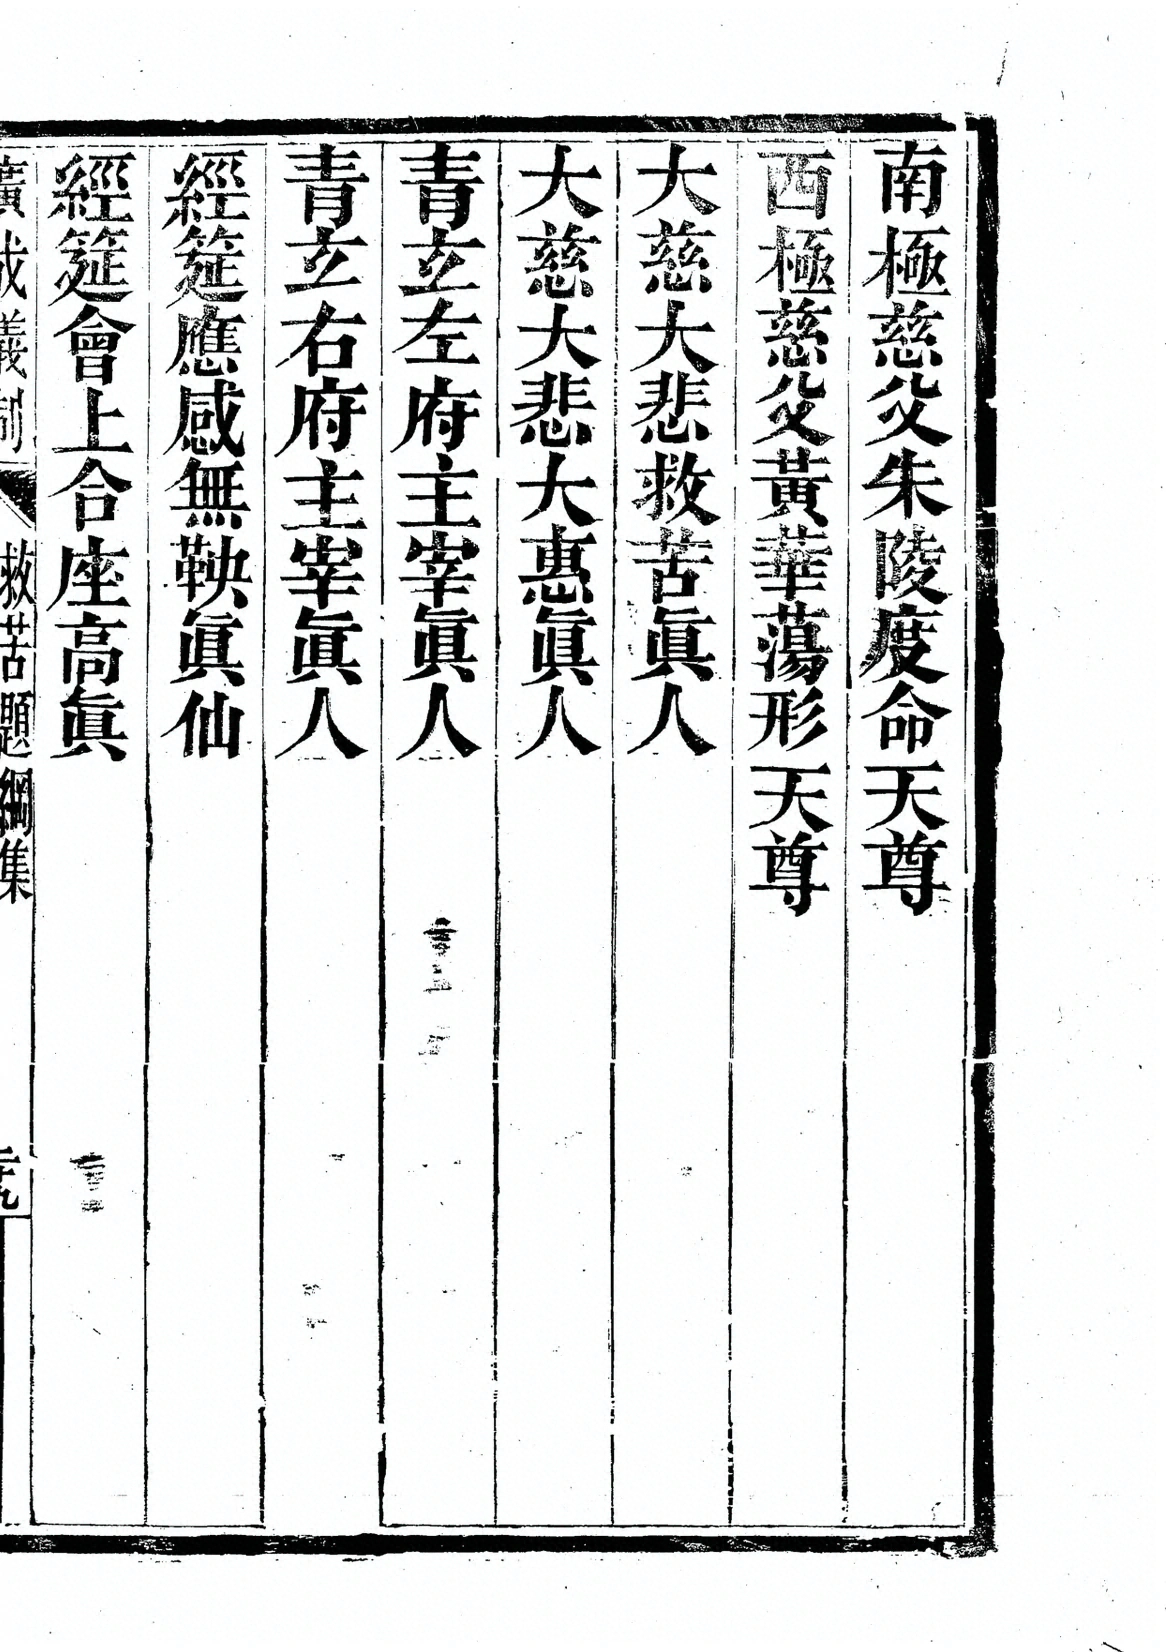 南極慈父朱陵度命天尊
西極慈父黃華蕩形天尊
大慈大悲救苦眞人
大慈大悲大惠眞人
青玄左府主宰眞人
青玄右府主宰眞人
經筵應感無鞅眞仙
經筵會上合座高眞
廣成儀制 救苦題綱集 二十九